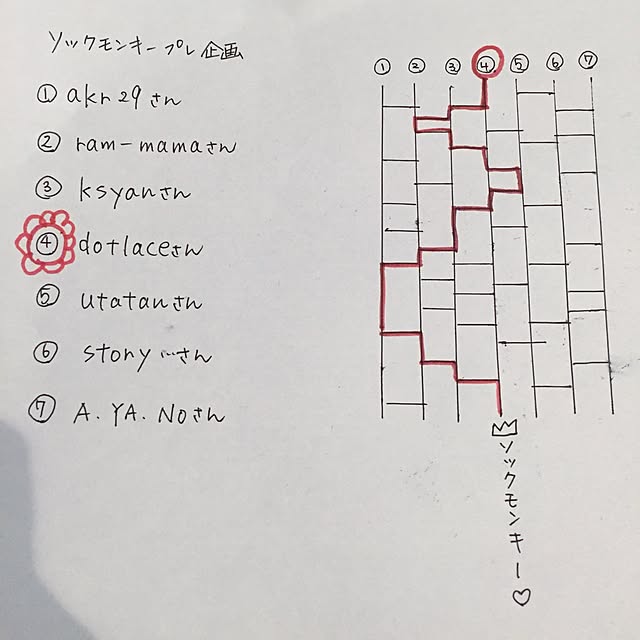 ソックモンキープレ企画
① akr29さん
② ram-mamaさん
③ ksyanさん
④ dotlaceさん
⑤ utatanさん
⑥ stony…さん
⑦ A.YA.NOさん
① ② ③ ④ ⑤ ⑥ ⑦
ソックモンキー♡